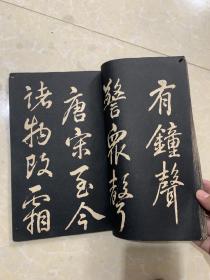 有鐘聲
警眾聲
唐宋至今
諸物改霜